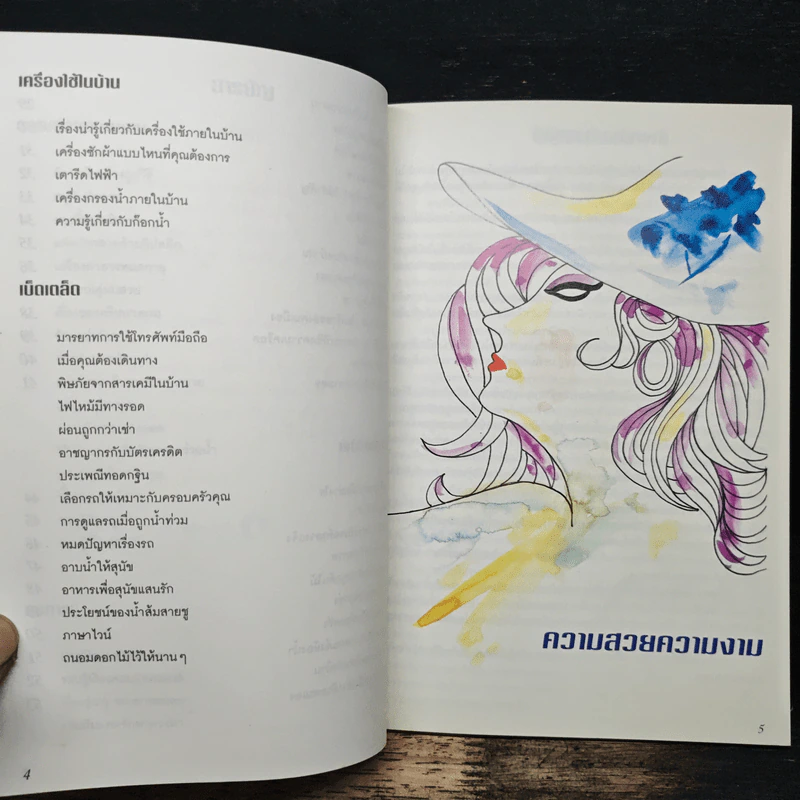 เครื่องใช้ในบ้าน
เรื่องน่ารู้เกี่ยวกับเครื่องใช้ภายในบ้าน
เครื่องซักผ้าแบบไหนที่คุณต้องการ
เตารีดไฟฟ้า
เครื่องกรองน้ำภายในบ้าน
ความรู้เกี่ยวกับก๊อกน้ำ
เบ็ดเตล็ด
มารยาทการใช้โทรศัพท์มือถือ
เมื่อคุณต้องเดินทาง
พิษภัยจากสารเคมีในบ้าน
ไฟไหม้มีทางรอด
ผ่อนถูกกว่าเช่า
อาชญากรกับบัตรเครดิต
ประเพณีทอดกฐิน
เลือกรถให้เหมาะกับครอบครัวคุณ
การดูแลรถเมื่อถูกน้ำท่วม
หมดปัญหาเรื่องรถ
อาบน้ำให้สุนัข
อาหารเพื่อสุนัขแสนรัก
ประโยชน์ของน้ำส้มสายชู
ภาษาไวน์
ถนอมดอกไม้ไว้ให้นาน ๆ
4
ความสวยความงาม
5